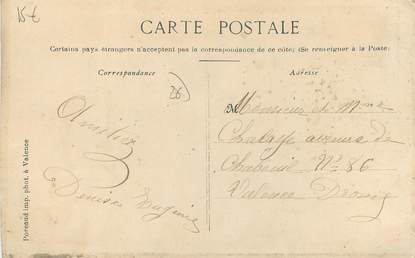 15€
CARTE POSTALE
Certains pays étrangers n'acceptent pas la correspondance de ce côté; (Se renseigner à la Poste)
Correspondance
Adresse
26
Amitiés
Denise Eugénie
Monsieur et Mme
Chalaye avenue de
Chabeuil No 86
Valence Drôme
Poreaud imp. phot. à Valence